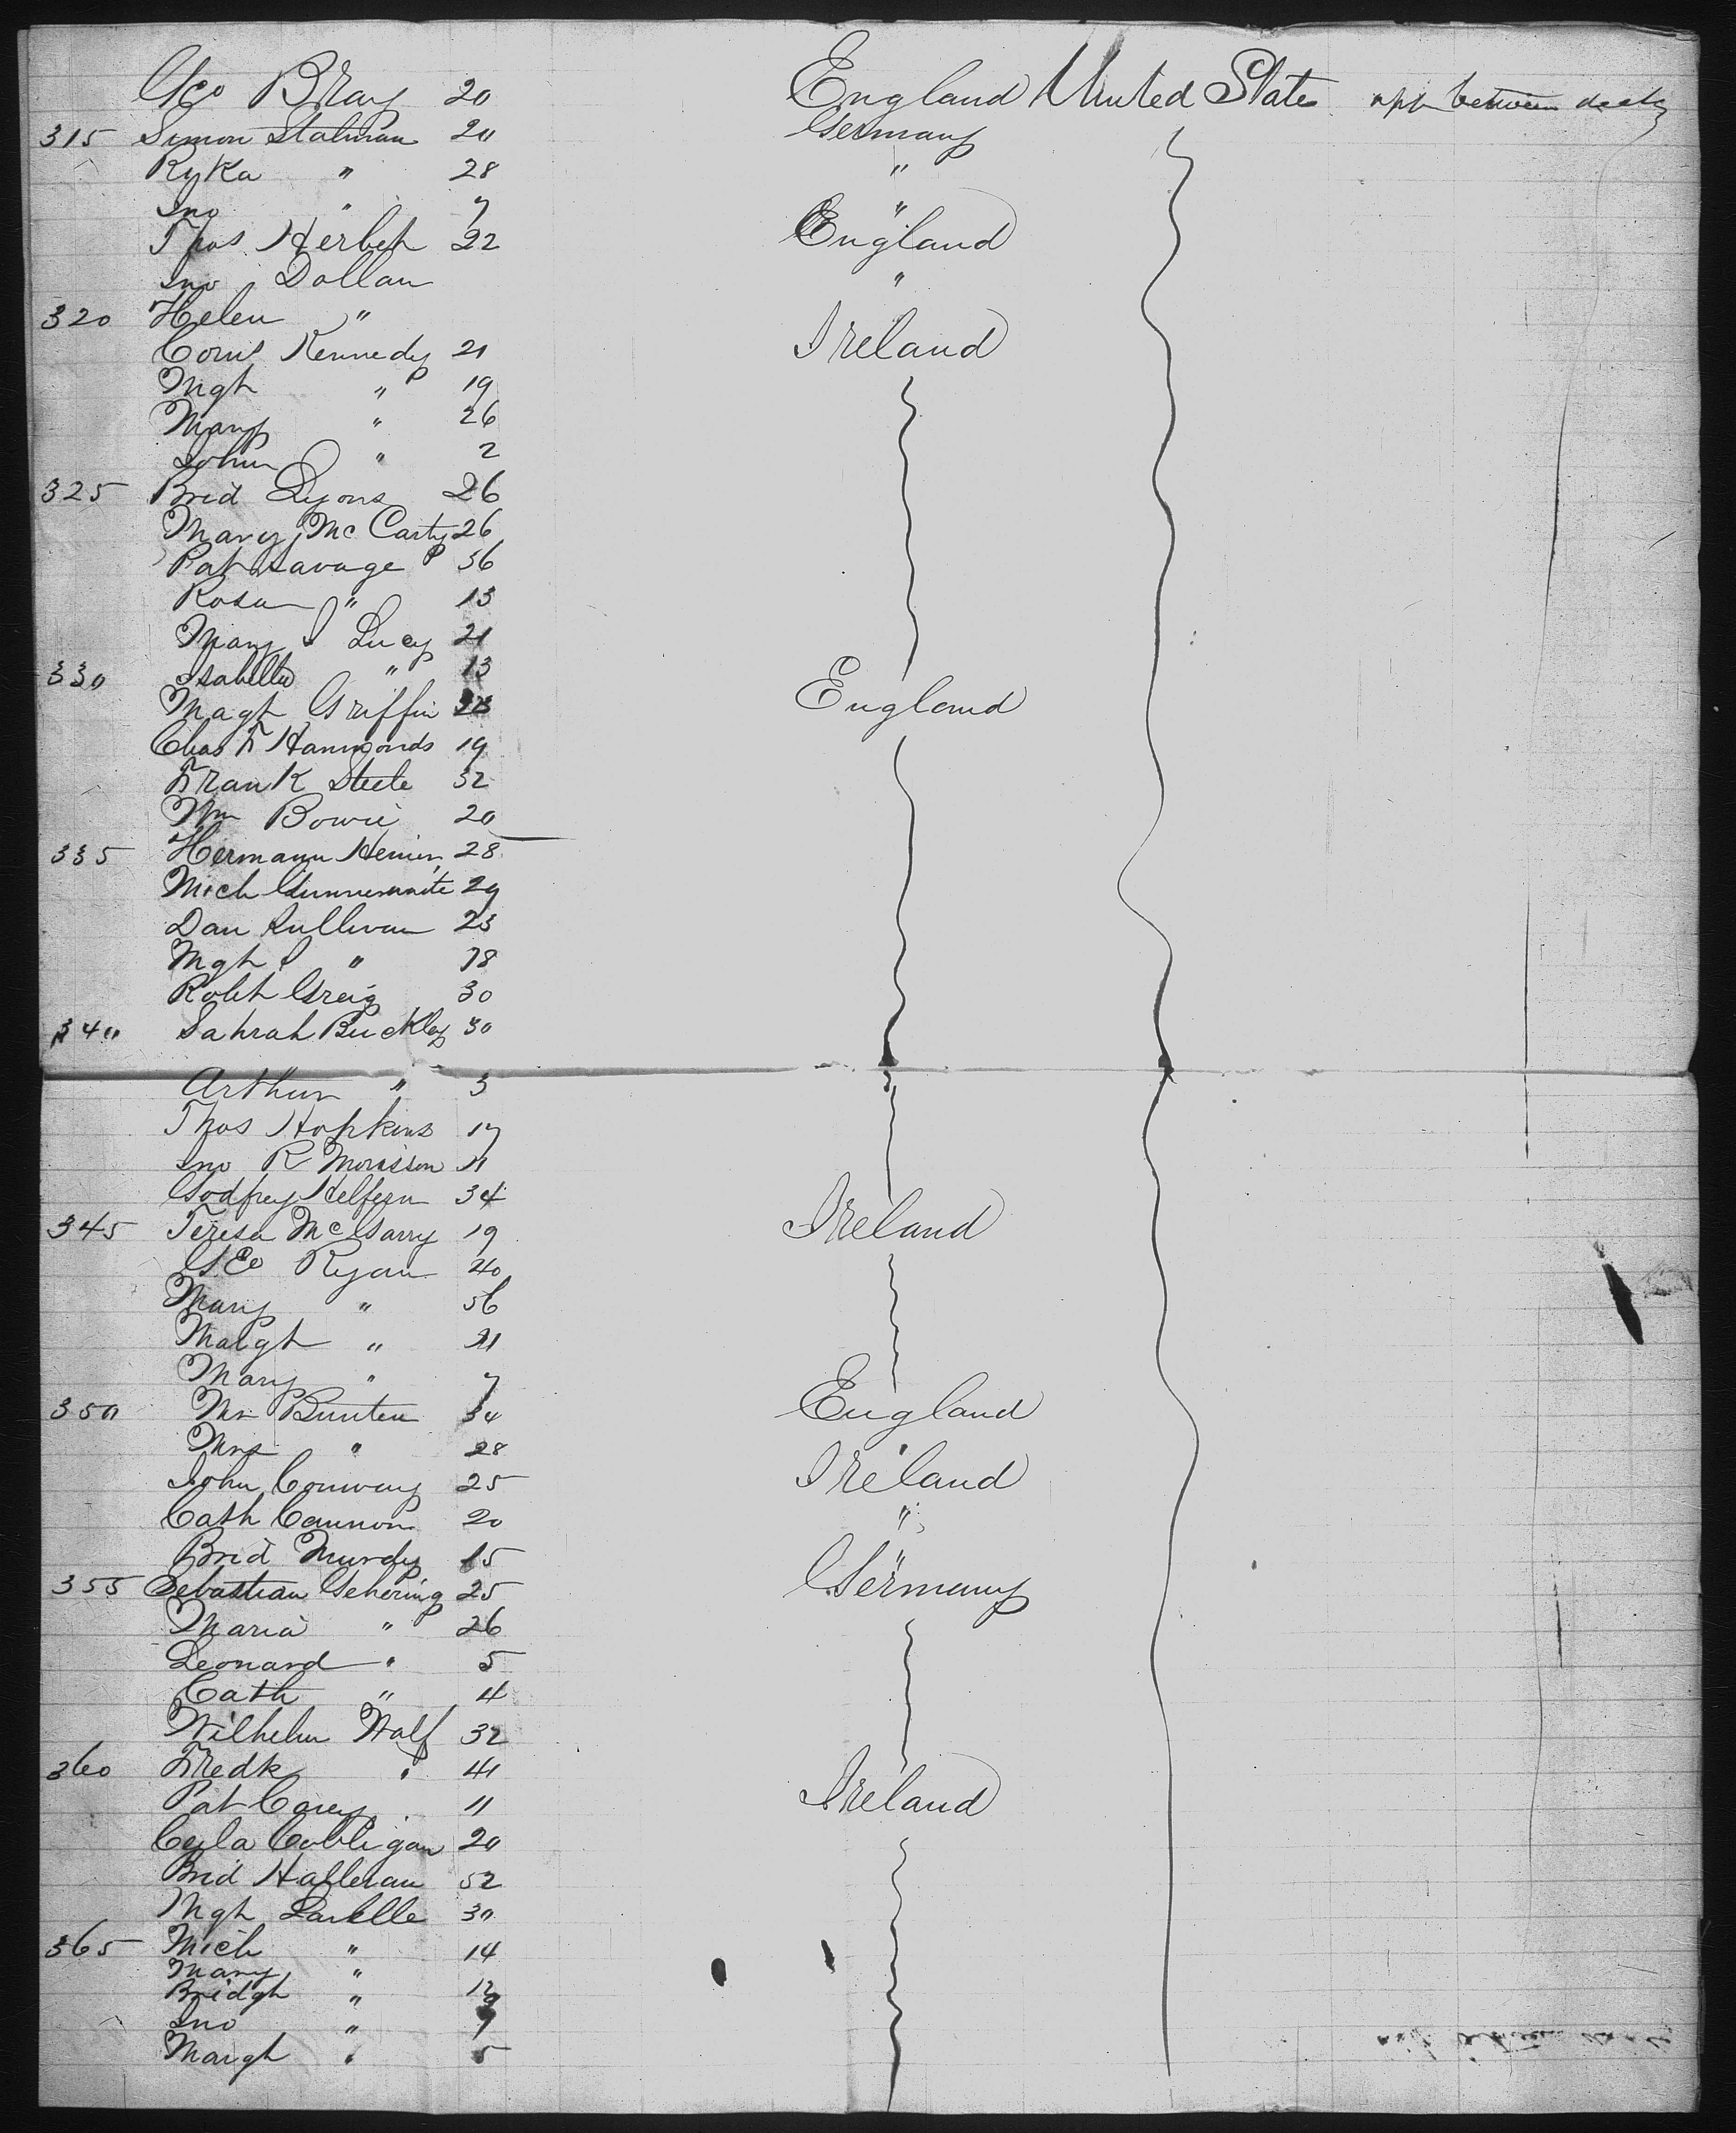 Geo Bray 20 England United States between decks
315 Simon Stalman 20 Germany
Ryka " 28 "
Jno " 7 "
Thos Herbert 22 England
Jno Dollan "
320 Helen "
Corns Kennedy 21 Ireland
Mgt " 19
Mary " 26
John " 2
325 Brid Lyons 26
Mary McCarty 26
Pat Savage 36
Rosa " 13
Mary Lucy 21
330 Isabella " 13
Magt Griffin England
Chas F Hammonds 19
Frank Steele 32
Wm Bowie 20
335 Hermann 28
Mich 29
Dan Sullivan 23
Mgt " 18
Robt Greig 30
340 Sahrah Buckley 30
Arthur " 3
Thos Hopkins 17
Jno R Morisson 11
Godfrey Helfern 34
345 Teresa McGarry 19 Ireland
Geo Ryan 40
Mary " 56
Margt " 21
Mary " 7
350 Mr Bunten 34 England
Mrs " 28 "
John Conway 25 Ireland
Cath Cannon 20 "
Brid Murdy 15 "
355 Sebastian Gehering 25 Germany
Maria " 26
Leonard " 5
Cath " 4
Wilhelm Half 32
360 Fredk " 41
Pat Carey 11 Ireland
Ceyla Cobligan 20
Brid Halleran 52
Mgt Larklle 30
365 Mich " 14
Mary "
Bridgt " 12
Jno " 9
Margt " 5